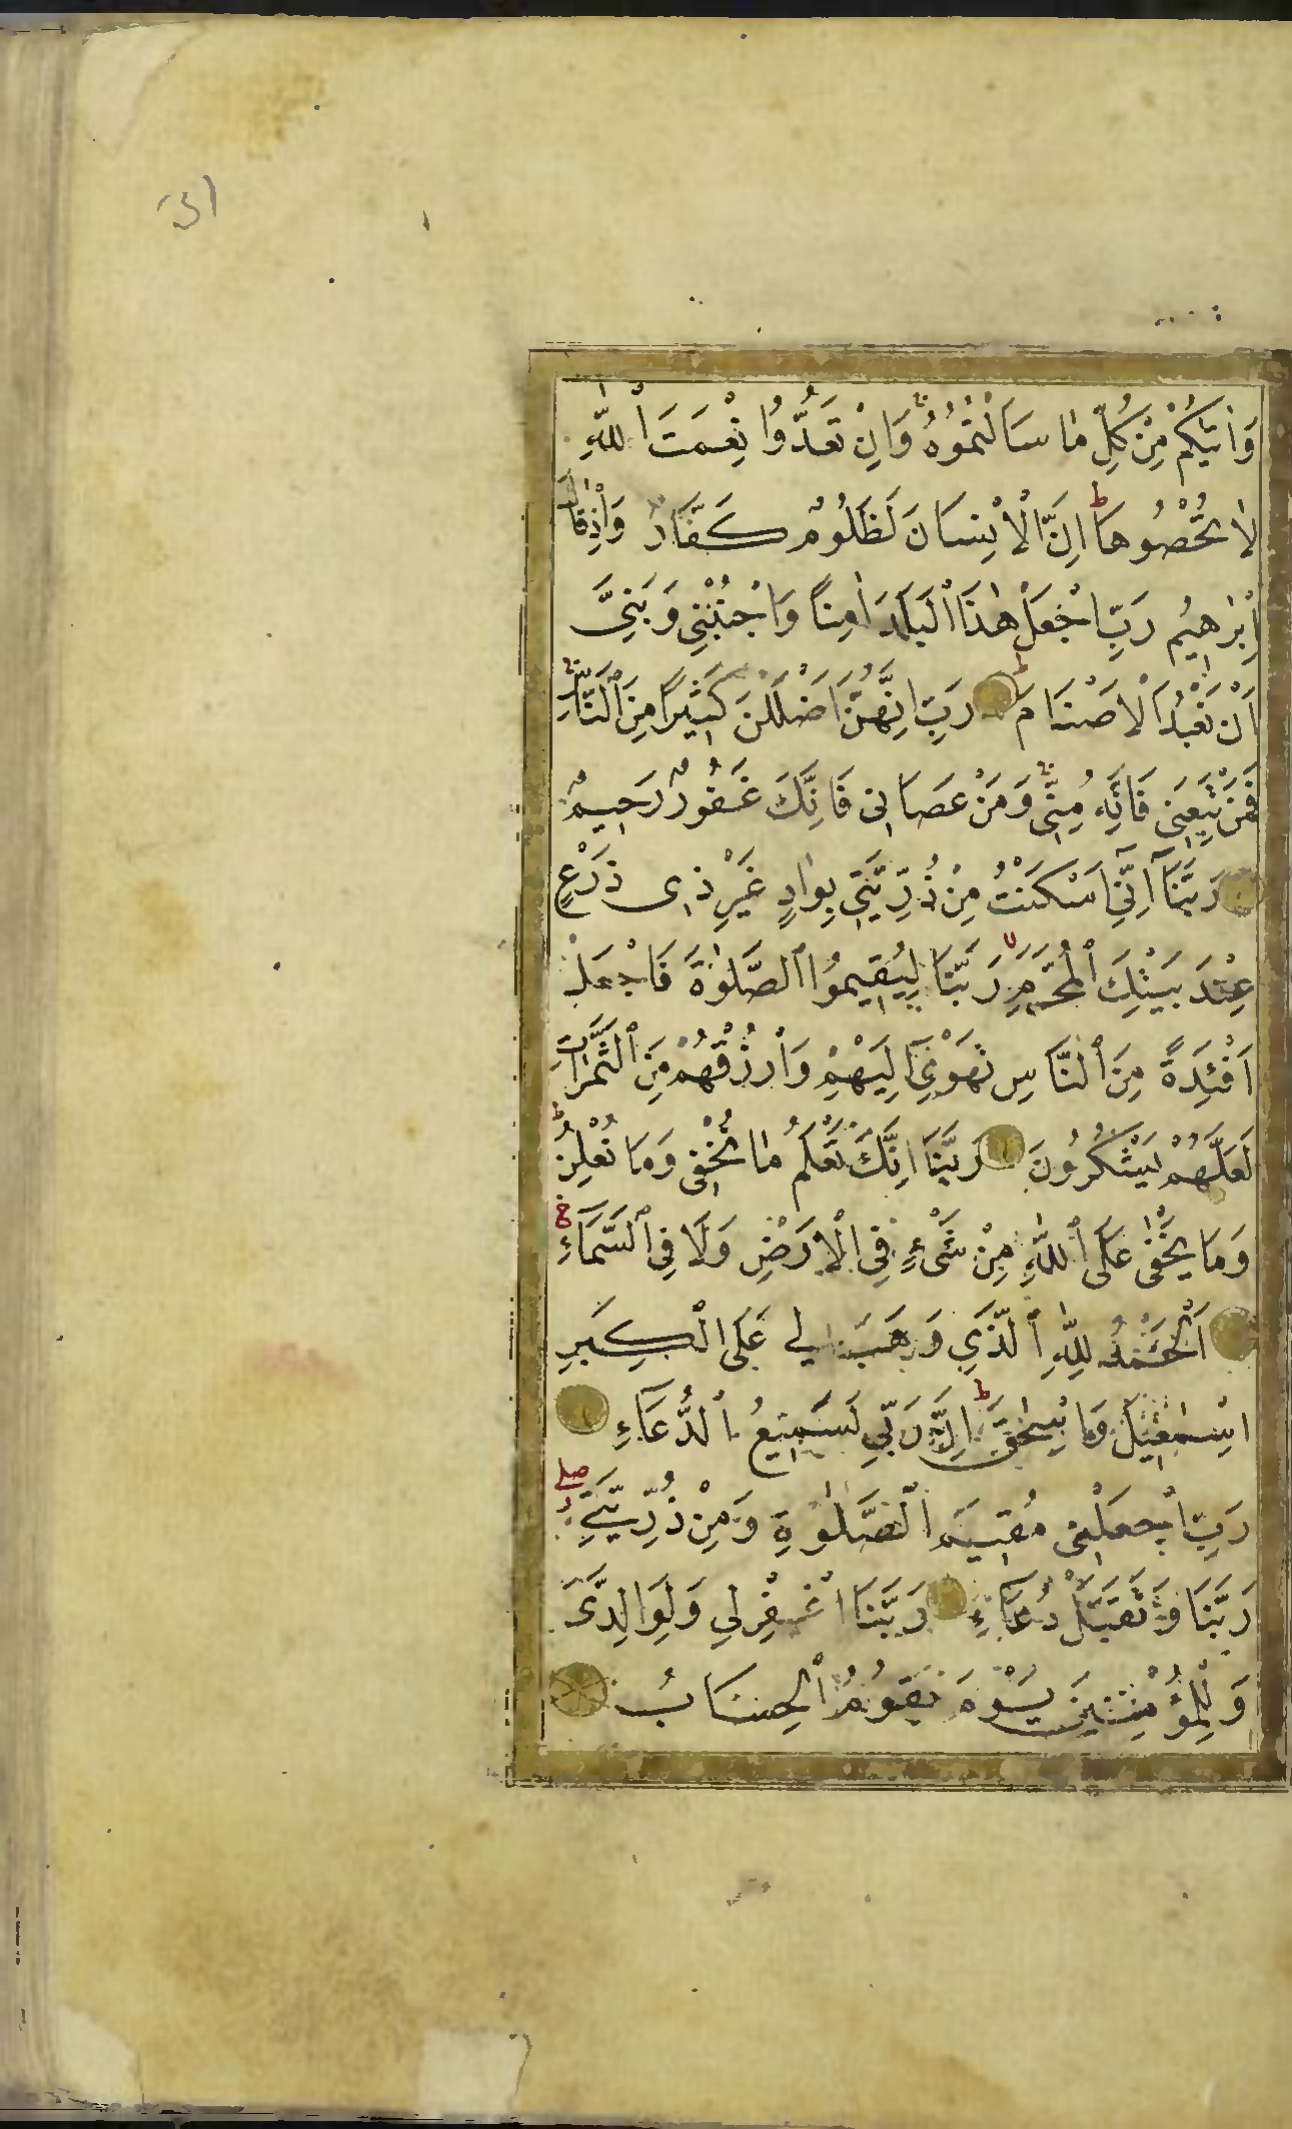 وَاٰتٰيكُمْ مِنْ كُلِّ مٰا سَاَلْتُمُوُهُ وَاِنْ تَعُدُّوُا نِعْمَتَ اللّٰهِ
لاٰ تُحْصُوهَا اِنَّ الْاِنْسَانَ لَظَلُومٌ كَفَّارٌ وَاِذْ قَالَ
اِبْرٰهِيمُ رَبِّ اجْعَلْ هٰذَا الْبَلَدَ اٰمِناً وَاجْنُبْنِي وَبَنِيَّ
اَنْ نَعْبُدَ الْاَصْنَامَ رَبِّ اِنَّهُنَّ اَضْلَلْنَ كَثِيرًا مِنَ النَّاسِ
فَمَنْ تَبِعَنِي فَاِنَّهُ مِنِّي وَمَنْ عَصَانِي فَاِنَّكَ غَفُورٌ رَحِيمٌ
رَبَّنَآ اِنِّي اَسْكَنْتُ مِنْ ذُرِّيَّتِي بِوٰادٍ غَيْرِ ذِي زَرْعٍ
عِنْدَ بَيْتِكَ الْمُحَرَّمِ رَبَّنَا لِيُقِيمُوُا الصَّلٰوةَ فَاجْعَلْ
اَفْئِدَةً مِنَ النَّاسِ تَهْوِيٓ اِلَيْهِمْ وَارْزُقْهُمْ مِنَ الثَّمَرَاتِ
لَعَلَّهُمْ يَشْكُرُونَ رَبَّنَا اِنَّكَ تَعْلَمُ مٰا نُخْفِي وَمَا نُعْلِنُ
وَمَا يَخْفٰى عَلَى اللّٰهِ مِنْ شَىْءٍ فِي الْاَرْضِ وَلَا فِي السَّمَآءِ
اَلْحَمْدُ لِلّٰهِ الَّذِي وَهَبَ لِي عَلَى الْكِبَرِ
اِسْمٰعِيلَ وَاِسْحٰقَ اِنَّ رَبِّي لَسَمِيعُ الدُّعَاءِ
رَبِّ اجْعَلْنِي مُقِيمَ الصَّلٰوةِ وَمِنْ ذُرِّيَّتِي
رَبَّنَا وَتَقَبَّلْ دُعَآءِ رَبَّنَا اغْفِرْلِي وَلِوَالِدَىَّ
وَلِلْمُؤْمِنِينَ يَوْمَ يَقُومُ الْحِسَابُ